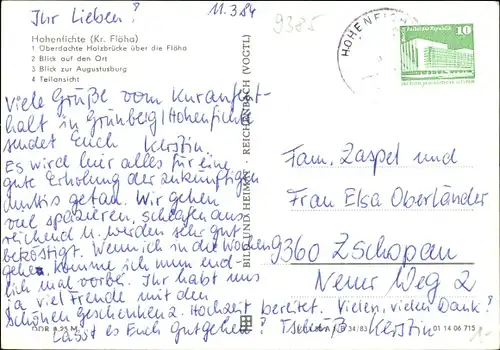 Ihr Lieben!
11.3.84
9385
Hohenfichte (Kr. Flöha)
1 Überdachte Holzbrücke über die Flöha
2 Blick auf den Ort
3 Blick zur Augustusburg
4 Teilansicht
Viele Grüße vom Kuraufent-
halt in Grünberg/Hohenfichte
sendet Euch Kerstin.
Es wird hier alles für eine
gute Erholung der zukünftigen
Muttis getan. Wir gehen
viel spazieren, schlafen aus
reichend u. werden sehr gut
beköstigt. Wenn ich in die Wochen
gehe, komme ich nun end-
lich mal vorbei. Ihr habt uns
ja viel Freude mit den
schönen Geschenken z. Hochzeit bereitet. Vielen, vielen Dank!
Lasst es Euch gutgehen! Tschüß Kerstin
BILD UND HEIMAT REICHENBACH (VOGTL)
HOHENFICHTE
Palast der Republik
10
DDR
Fam. Zaspel und
Frau Elsa Oberländer
9360 Zschopau
Neuer Weg 2
34/83
01 14 06 715